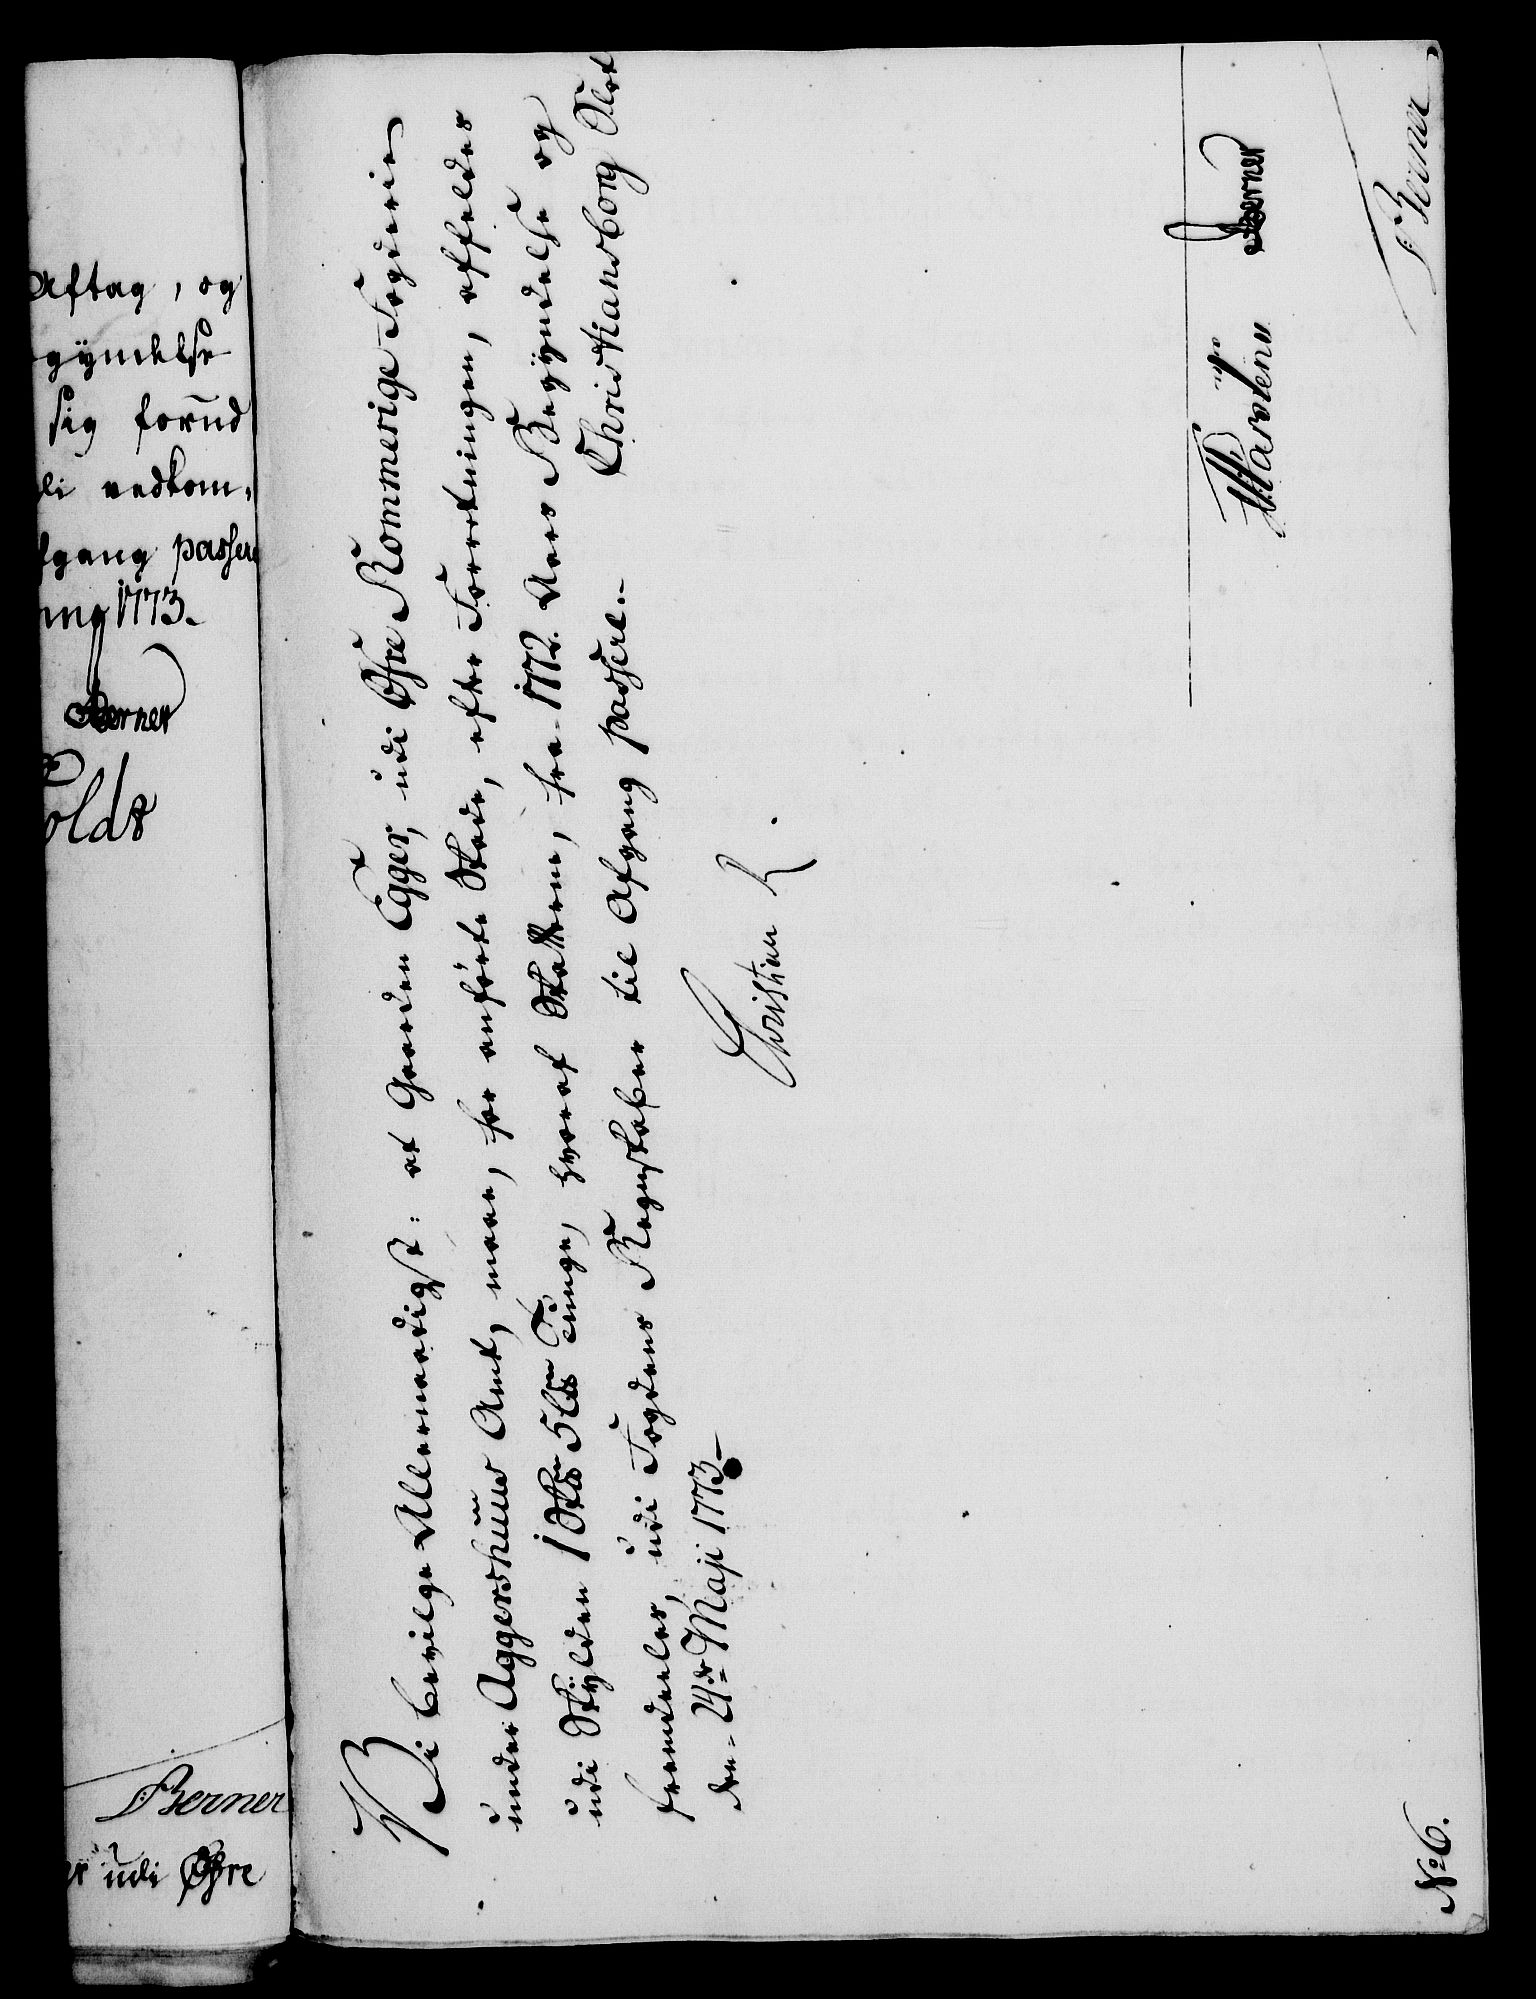 Aftag, og
gÿndelse
sig forud
di vedkom,
fgang passere
1773.
Berner
Holdt
Berner
er udi Øfre
Vi bevilge Allernaadigst: at Gaarden Egger, udi Øfre Rommerige Fogderie
under Aggershuus Amt, maae, for anførte Skade, efter Forretningen, affældes
udi Skÿlden 1 Skd 5 Ld Tunge, hvoraf Skatterne, fra 1772 Aars Begÿndelse og
fremdeeles, udi Fogdens Regnskaber til Afgang passere. Christiansborg Slot
den 24de Maji 1773.
Christian R
Martens Berner
Berner
No 6.